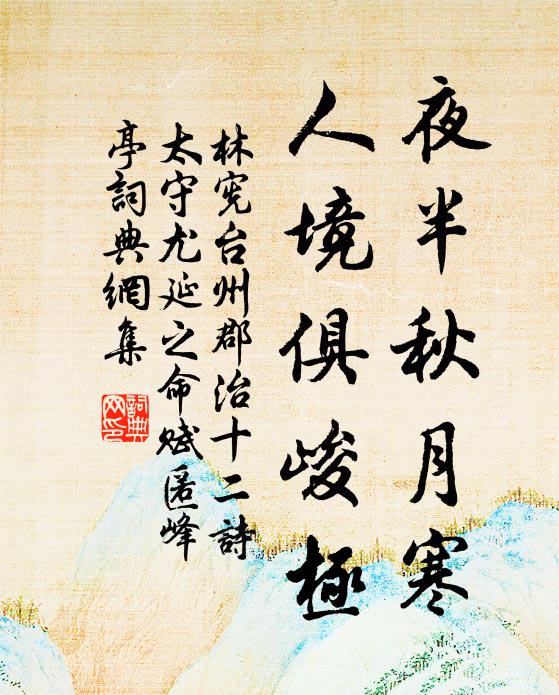 夜半秋月寒
人境俱峻極
林宪台州郡治十二詩
太守尤延之命赋匿峰
亭詞典網集
詞典
网印